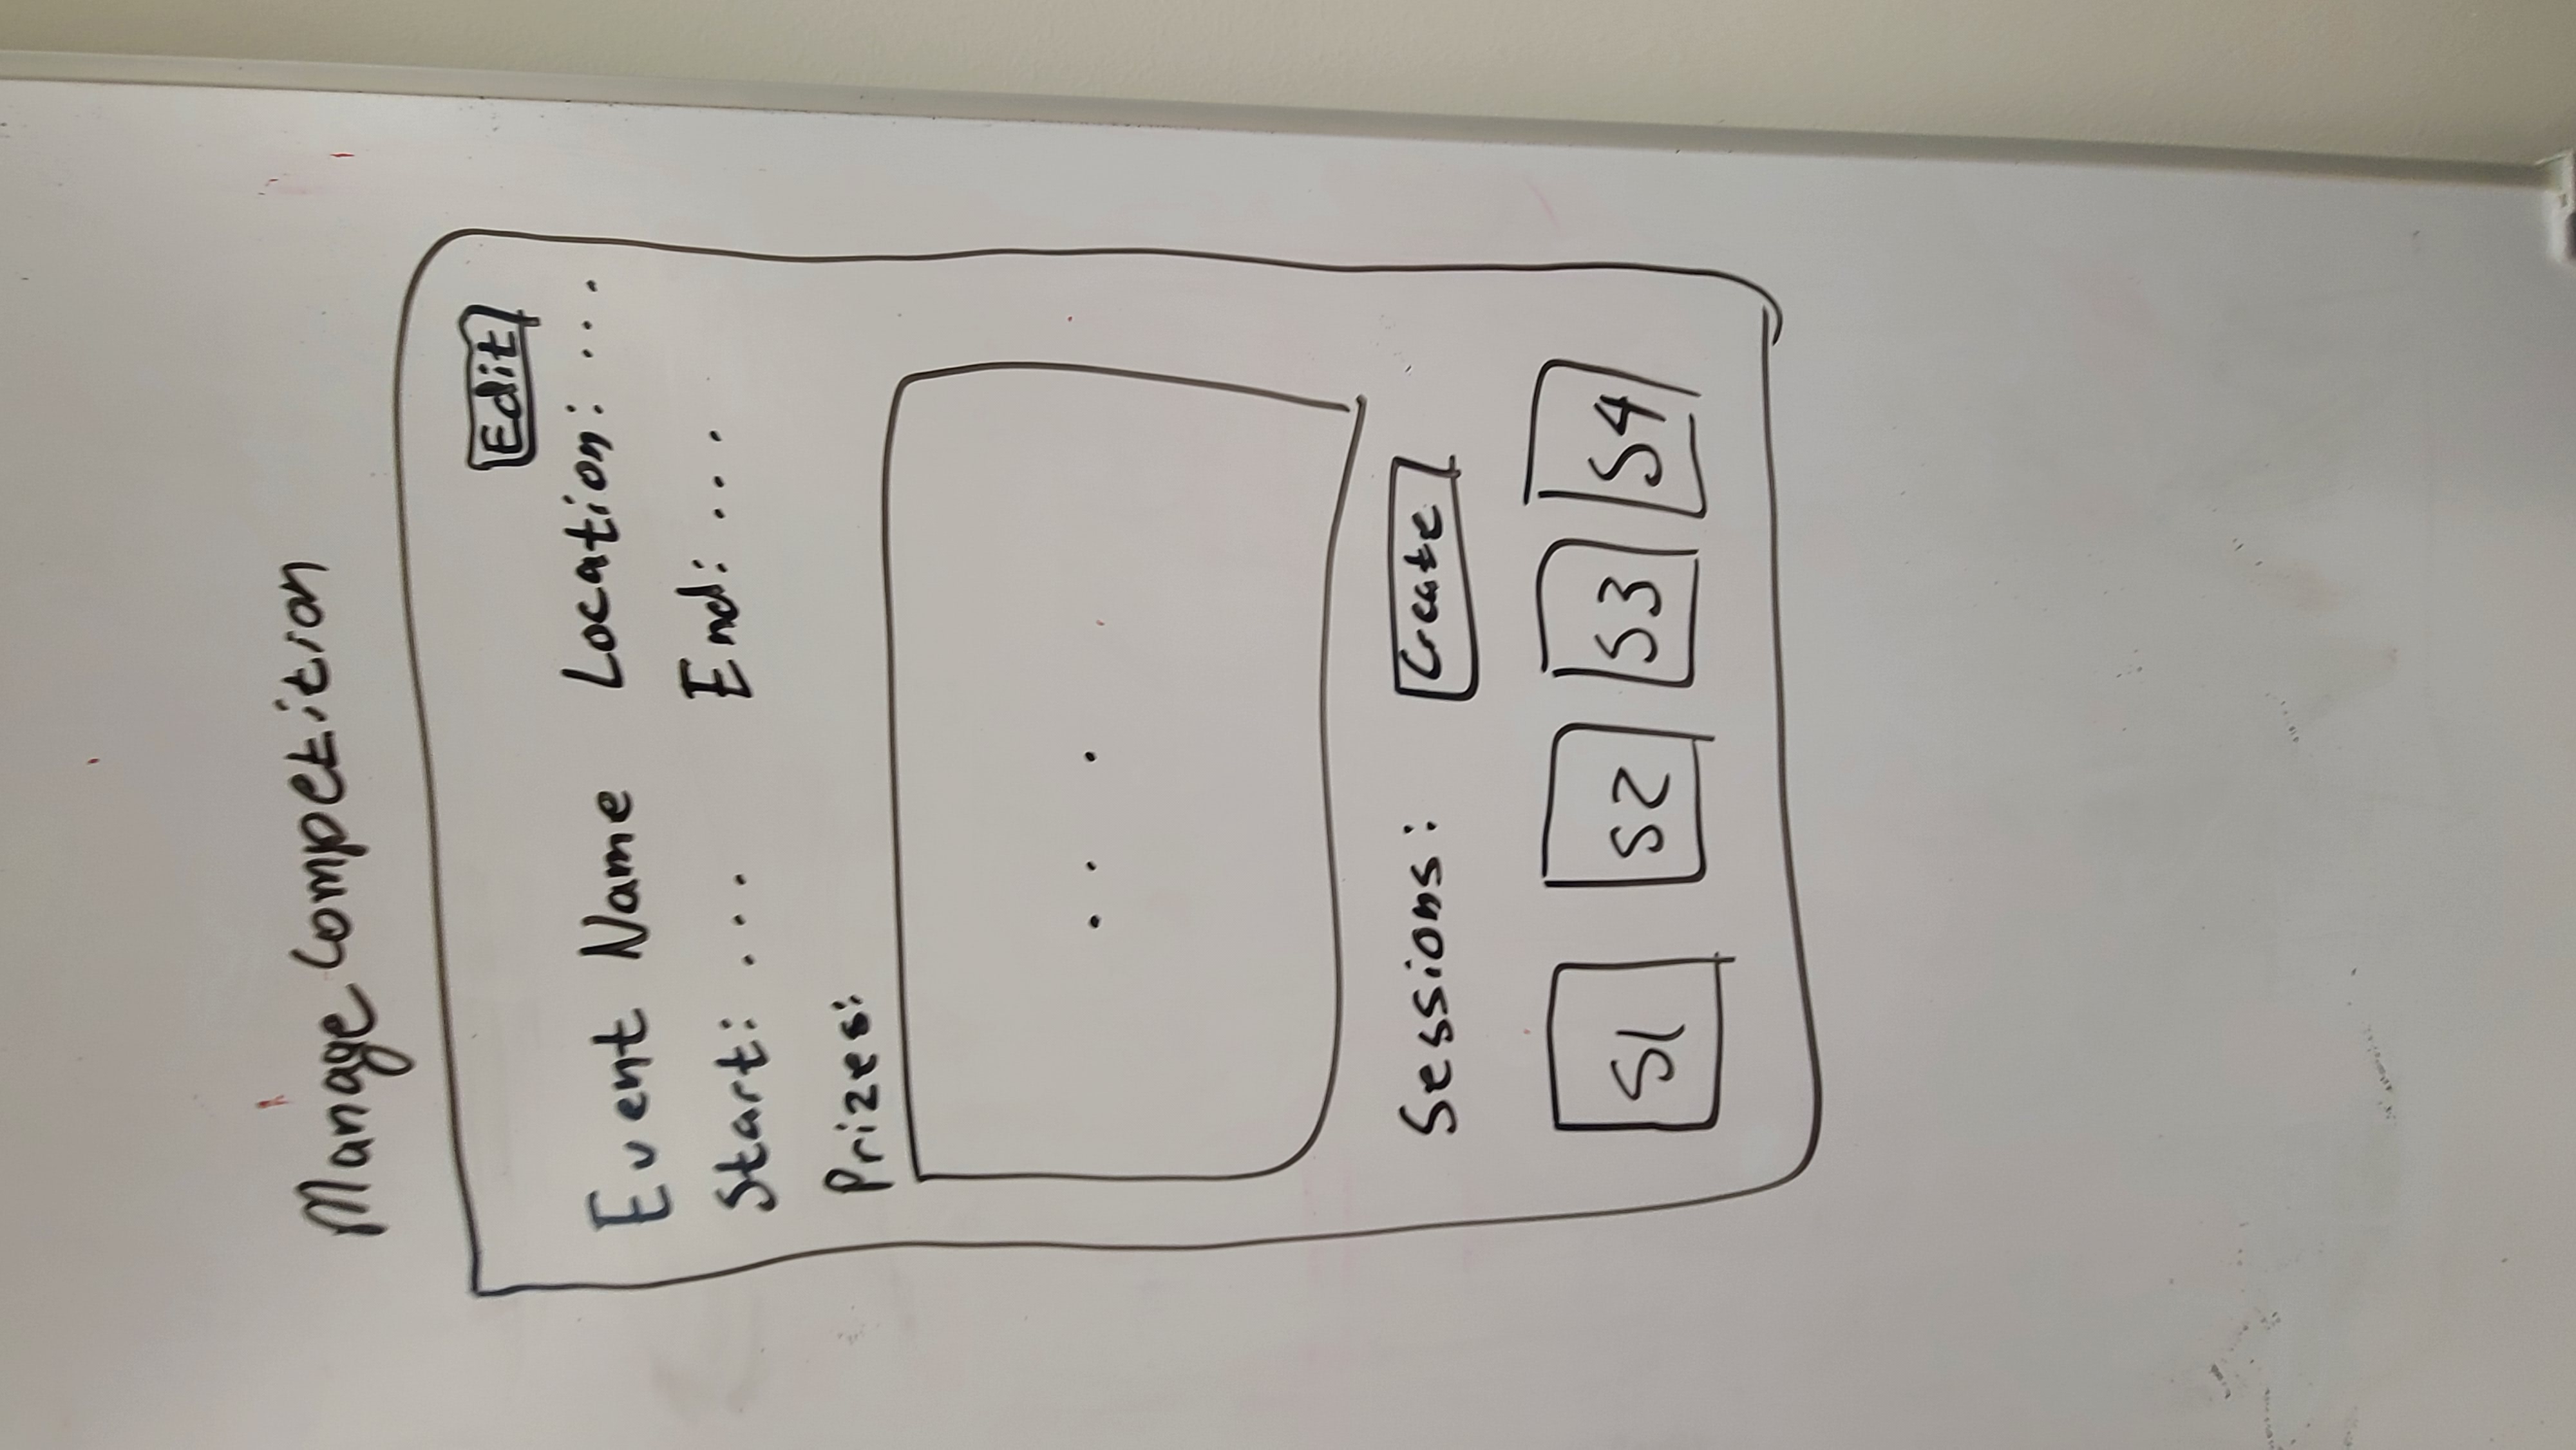 Manage Competition
Edit
Event Name Location: ...
Start: ... End: ...
Prizes:
...
Sessions: Create
S1 S2 S3 S4